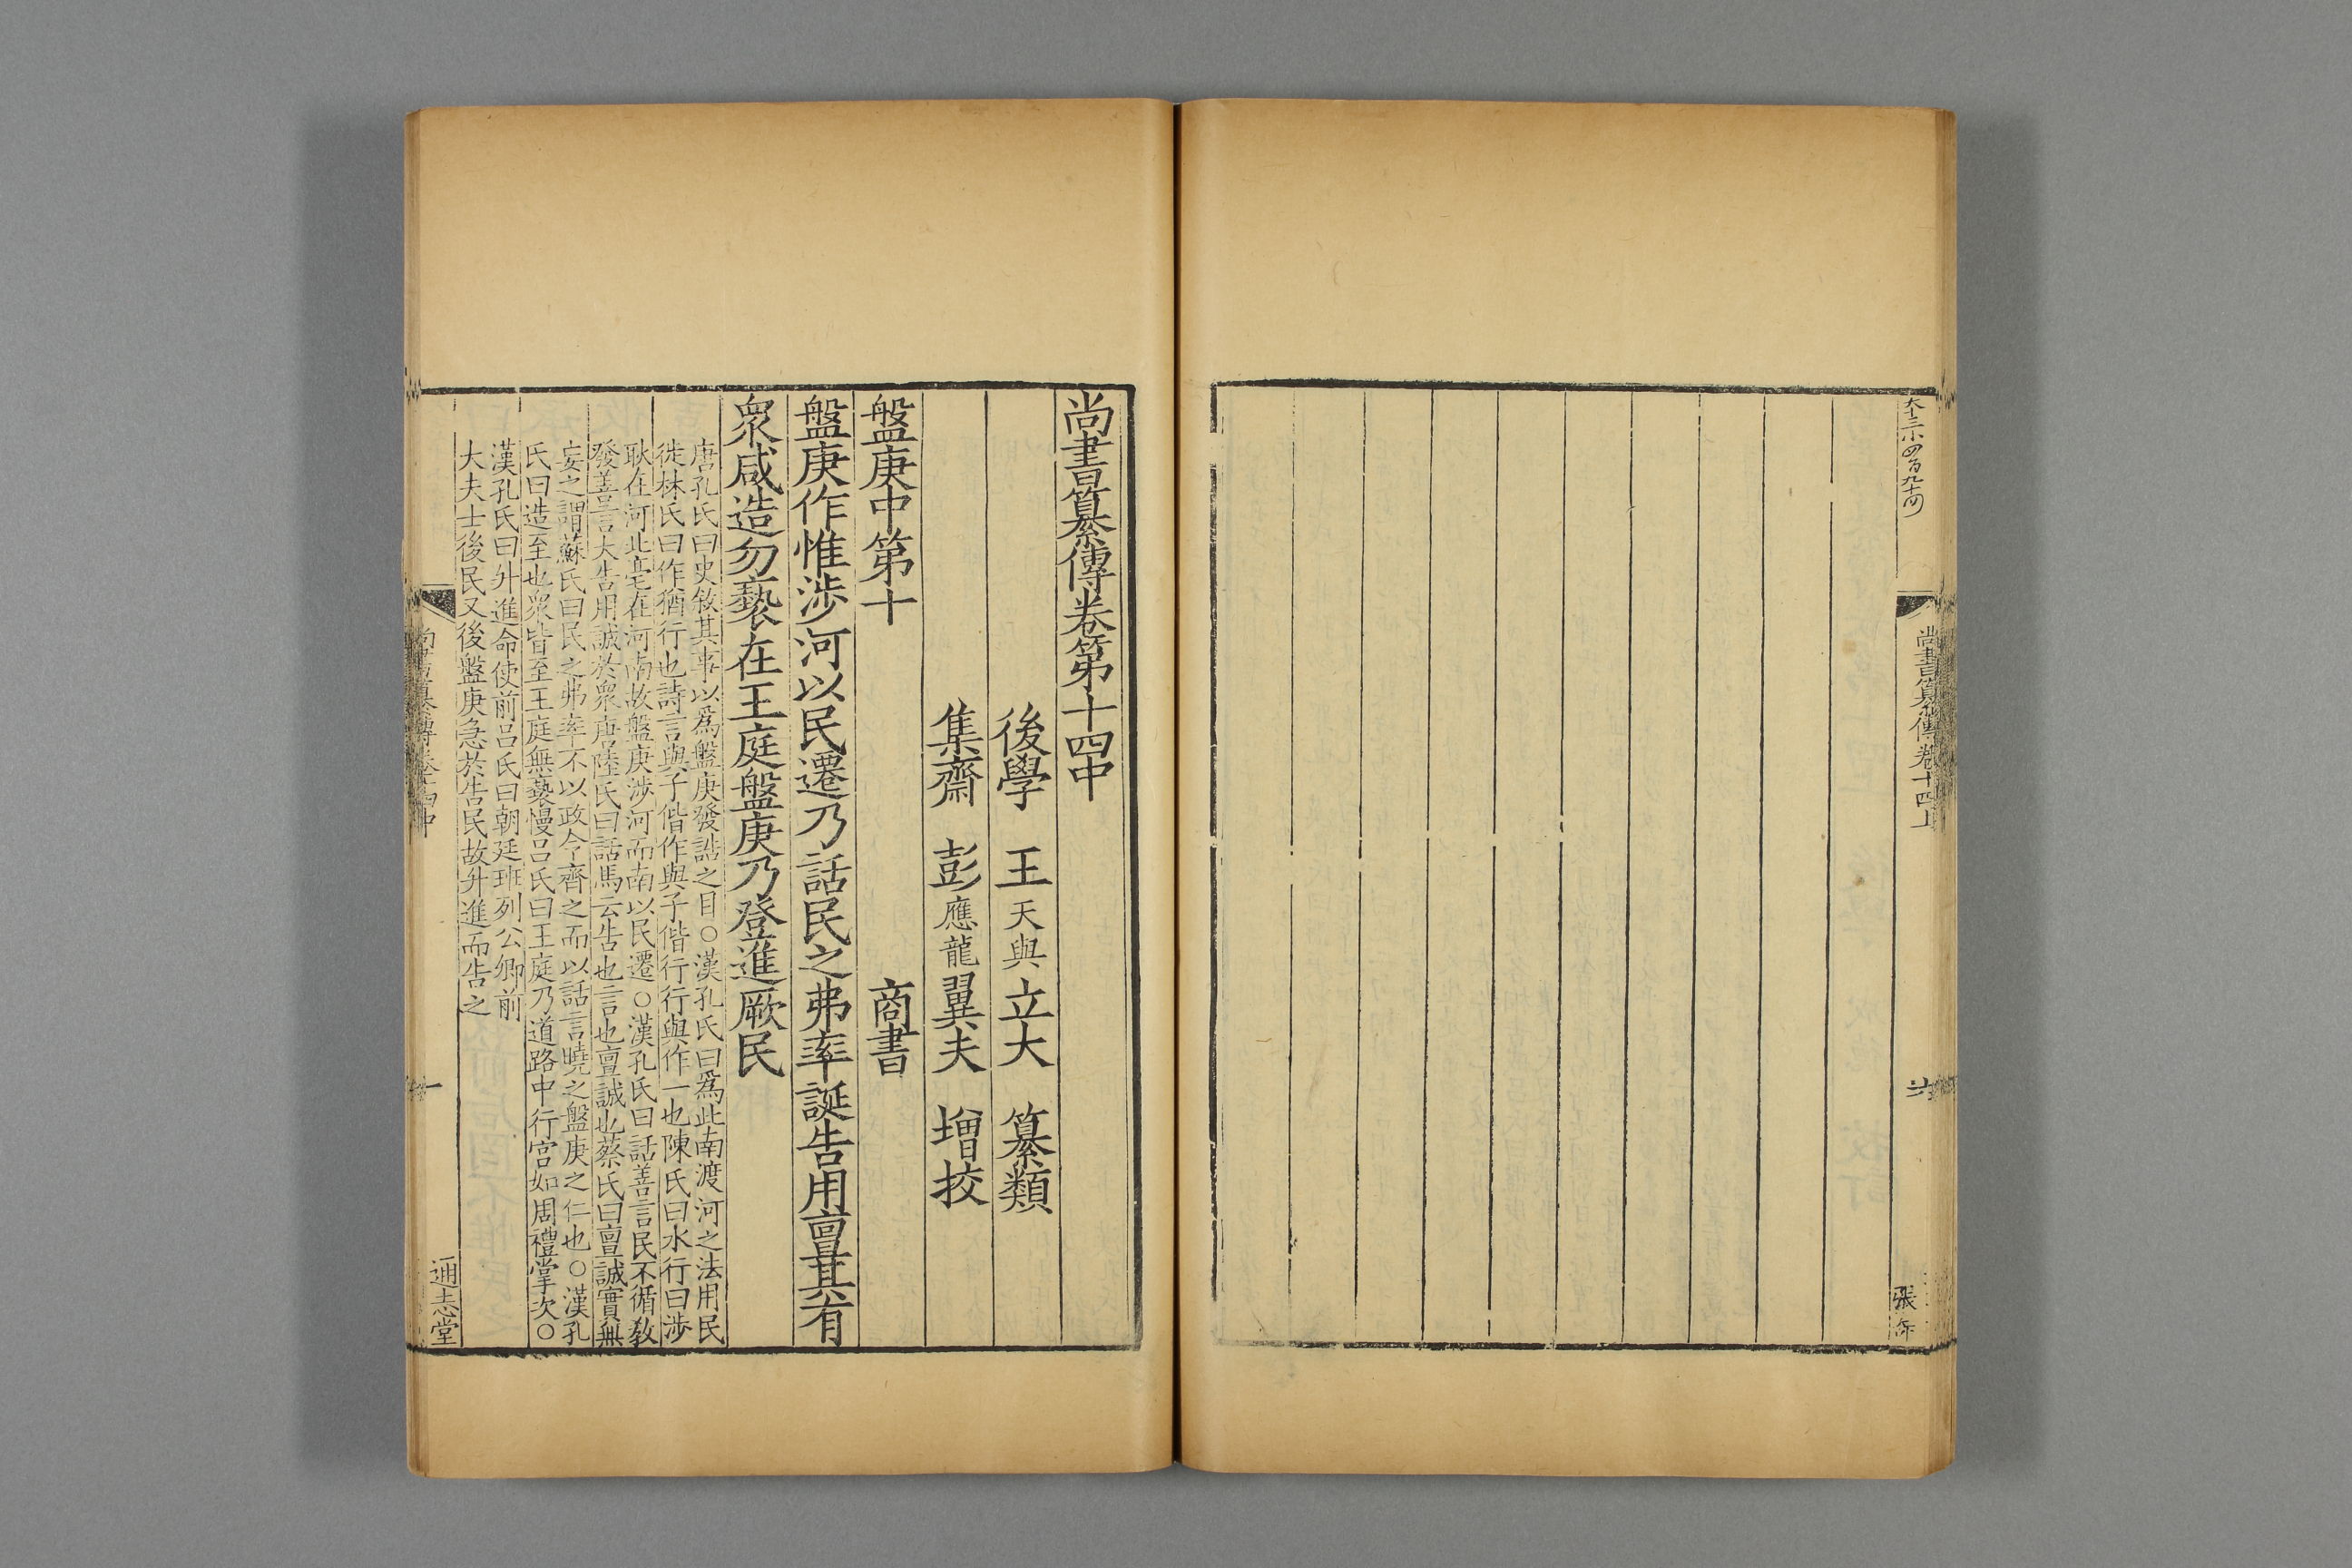 大十三小四百九十四
尚書纂傳卷十四上
張
尚書纂傳卷第十四中
後學 王天與立大 纂類
集齋 彭應龍翼夫 增挍
盤庚中第十 商書
盤庚作惟涉河以民遷乃話民之弗率誕告用亶其有
衆咸造勿褻在王庭盤庚乃登進厥民
唐孔氏曰史敘其事以爲盤庚發誥之目○漢孔氏曰爲此南渡河之法用民
徙林氏曰作猶行也詩言與子偕作與子偕行行與作一也陳氏曰水行曰涉
耿在河北亳在河南故盤庚涉河而南以民遷○漢孔氏曰話善言民不循敎
發善言大告用誠於衆唐陸氏曰話馬云告也言也亶誠也蔡氏曰亶誠實無
妄之謂蘇氏曰民之弗率不以政令齊之而以話言曉之盤庚之仁也○漢孔
氏曰造至也衆皆至王庭無褻慢吕氏曰王庭乃道路中行宫如周禮掌次○
漢孔氏曰升進命使前吕氏曰朝廷班列公卿前
大夫士後民又後盤庚急於告民故升進而告之
尚書纂傳卷十四中
一
通志堂